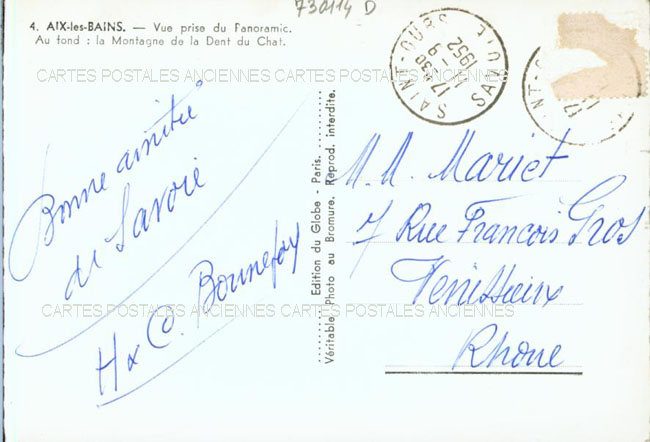 730114 D
4. AIX-les-BAINS. — Vue prise du Panoramic.
Au fond : la Montagne de la Dent du Chat.
CARTES POSTALES ANCIENNES CARTES POSTALES ANCIENNES
17 H30
11 - 9
1952
SAVOIE
Bonne amitié
de Savoie
H & O. Bonnefoy
Edition du Globe - Paris.
Véritable Photo au Bromure. Reprod. interdite.
M. M. Mariet
7 Rue François Gros
Venissieux
Rhone
CARTES POSTALES ANCIENNES CARTES POSTALES ANCIENNES